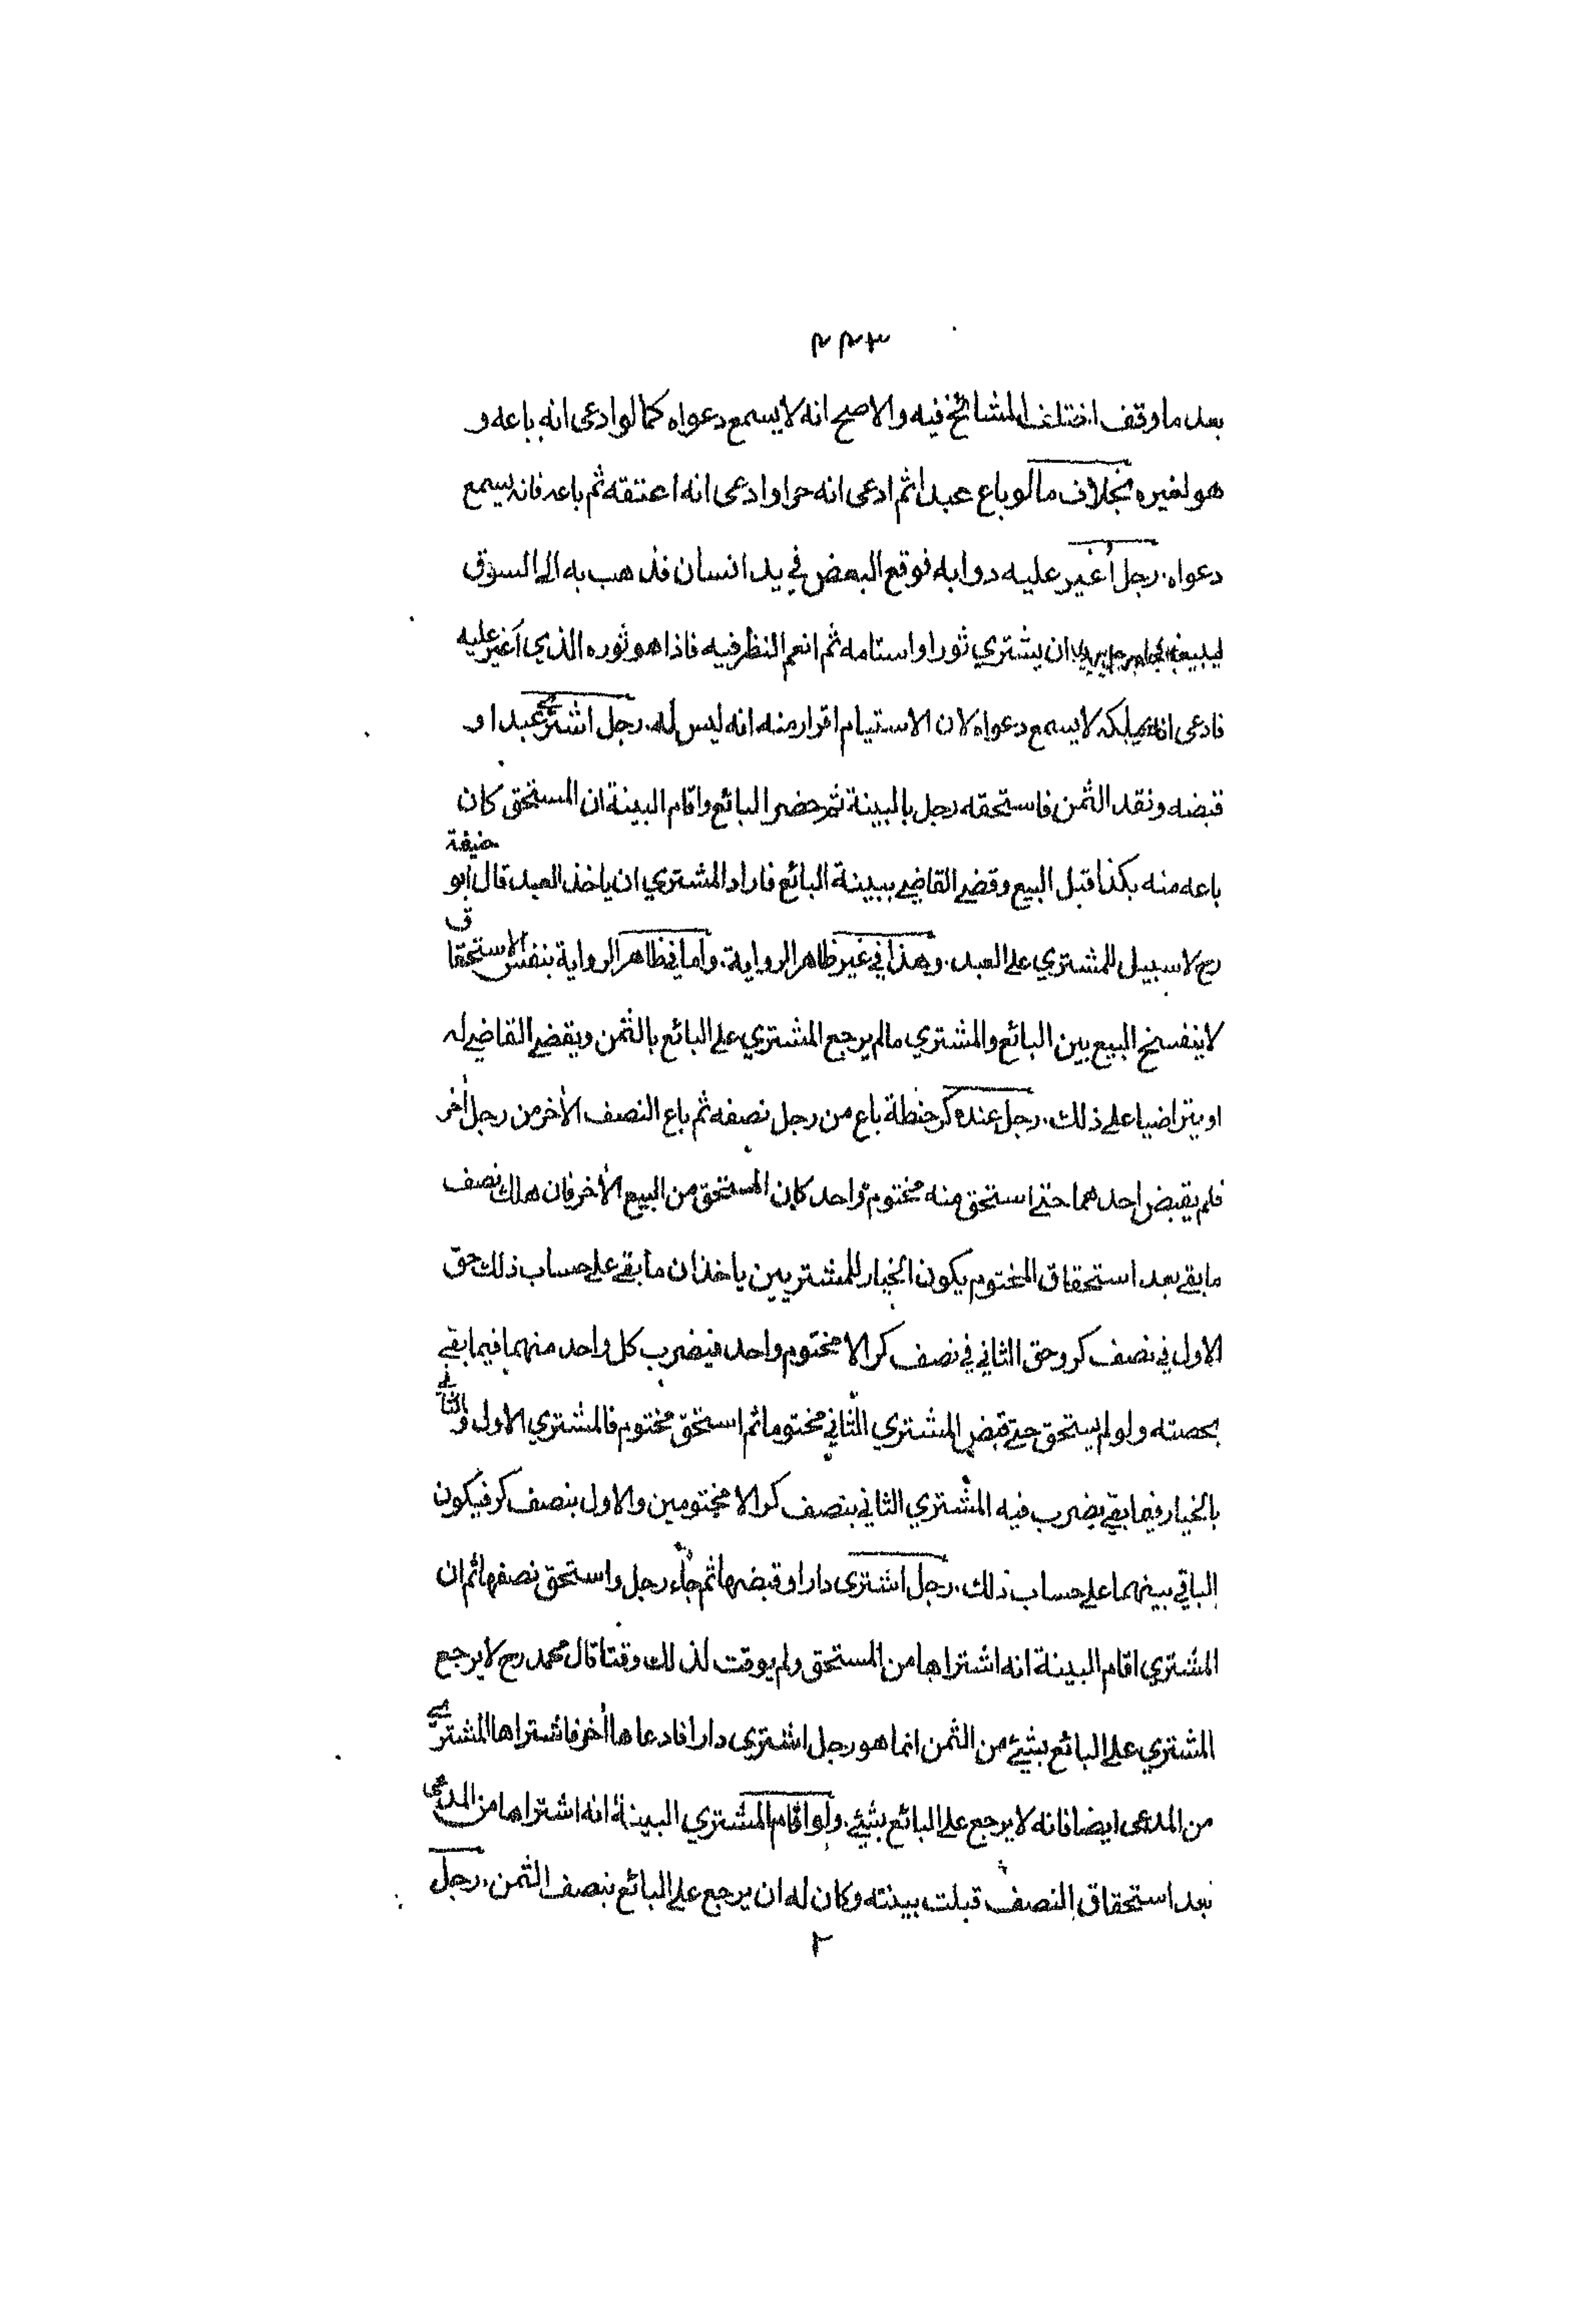 ٢٢٣
بعد ما وقف اختلف المشائخ فيه والاصح انه لا يسمع دعواه كما لو ادعى انه باعه و
هو لغيره بخلاف ما لو باع عبدا ثم ادعى انه حر او ادعى انه اعتقه ثم باعه فانه يسمع
دعواه. رجل أغير عليه دوابه فوقع البعض في يد انسان فذهب به الى السوق
ليبيعه ان يشتري ثورا واستامه ثم انعم النظر فيه فاذا هو ثوره الذي أغير عليه
فادعى انه ملكه لا يسمع دعواه لان الاستيام اقرار منه انه ليس له. رجل اشترى عبدا و
قبضه ونقد الثمن فاستحقه رجل بالبينة ثم حضر البائع واقام البينة ان المستحق كان
باعه منه بكذا قبل البيع وقضى القاضي ببينة البائع فاراد المشتري ان ياخذ العبد قال ابو حنيفة
رح لا سبيل للمشتري على العبد. وهذا في غير ظاهر الرواية. واما في ظاهر الرواية بنفس الاستحقاق
لا ينفسخ البيع بين البائع والمشتري ما لم يرجع المشتري على البائع بالثمن ويقضى القاضي له
او يتراضيا على ذلك. رجل عنده كر حنطة باع من رجل نصفه ثم باع النصف الأخر من رجل أخر
فلم يقبض احدهما حتى استحق منه مختوم واحد كان المستحق من البيع الأخر فان هلك نصف
ما بقي بعد استحقاق المختوم يكون الخيار للمشتريين ياخذان ما بقي على حساب ذلك حق
الاول في نصف كر وحق الثاني في نصف كر الا مختوم واحد فيضرب كل واحد منهما فيما بقي
بحصته ولو لم يستحق حتى قبض المشتري الثاني مختوما ثم استحق مختوم فالمشتري الاول والثاني
بالخيار فيما بقي يضرب فيه المشتري الثاني بنصف كر الا مختومين والاول بنصف كر فيكون
الباقي بينهما على حساب ذلك. رجل اشترى دارا وقبضها ثم جاء رجل واستحق نصفها ثم ان
المشتري اقام البينة انه اشتراها من المستحق ولم يوقت لذلك وقتا قال محمد رح لا يرجع
المشتري على البائع بشيئ من الثمن انما هو رجل اشترى دارا فادعاها أخر فاشتراها المشتري
من المدعى ايضا فانه لا يرجع على البائع بشيئ. ولو اقام المشتري البينة انه اشتراها من المدعى
بعد استحقاق النصف قبلت بينته وكان له ان يرجع على البائع بنصف الثمن. رجل
٢